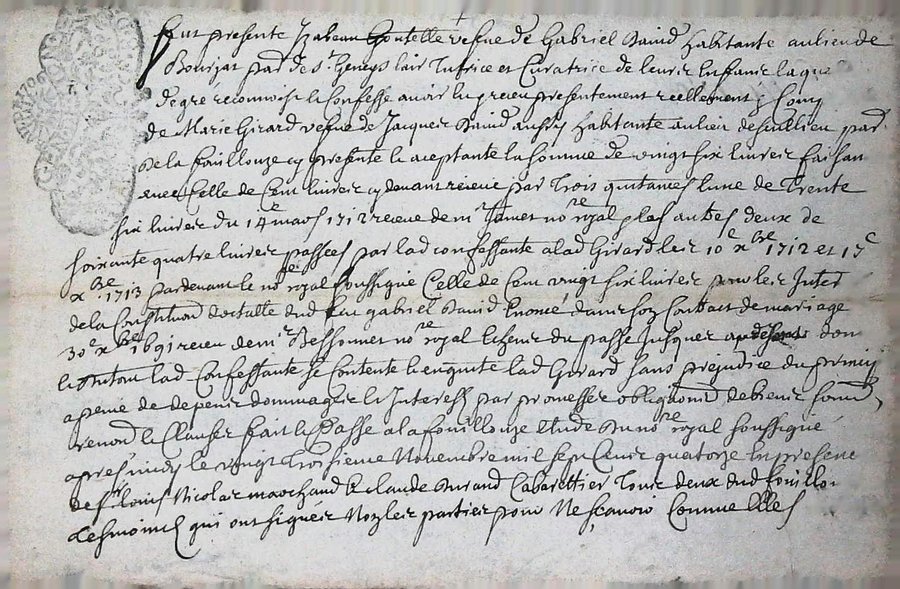 Fut presente Izabeau Goutelle vefve de Gabriel David habitante au lieu de
Bourjat par de st Geneys lair Tutrice et Curatrice de leurs enfans laqu
de gré reconnoist et Confesse avoir eu et receu presentement reellement
de Marie Girard vefve de Jacques David aussy habitante au lieu de par
de la fouillouze cy presente et aceptante la somme de vingt six livres faisan
avec Celle de Cent livres cy devant receue par Trois quitances lune de Trente
six livres du 14e mars 1712 receue de mr no.re royal et les autres deux de
soixante quatre livres passées par lad confessante a lad Girard les 10e xbre 1712 et 15e
xbre 1713 pardevant le no.re royal soussigné Celle de Cent vingt six livres pour les Inter
de la Constitution dud feu gabriel David Enoncé dans son Contract de mariage
30e xbre 1691 receu de mr Bessonnet no.re royal et Iceux du passé Jusques don
lad Confessante se Contente et en quite lad Girard sans prejudice du princip
a peine de depens dommages et Interest par promesses obligations de biens soumis
renon et Clauses fait et Passé a la fouillouze Etude du no.re royal soussigné
apres midy le vingt Troisieme Novembre mil sept Cens quatorze En presenc
de sr Louis Nicolas marchand et Claude Durand Cabarettier Tous deux dud fouillou
Tesmoins qui ont signés Non les parties pour ne scavoir Comme elles